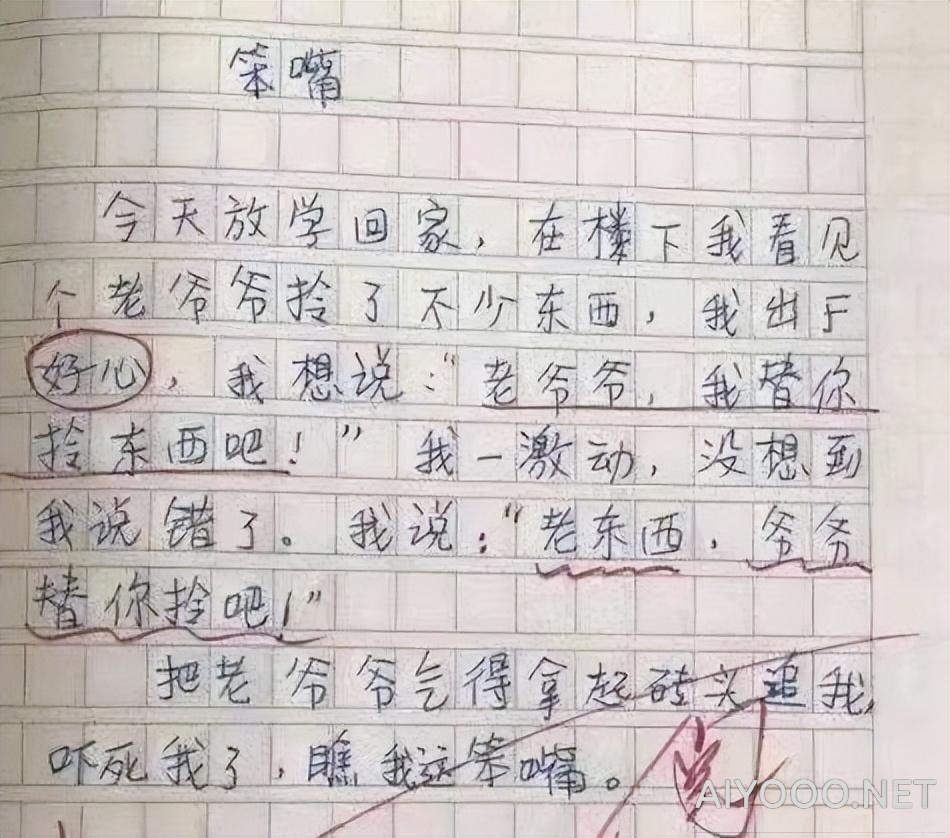 笨嘴
今天放学回家，在楼下我看见
个老爷爷拎了不少东西，我出于
好心，我想说："老爷爷，我替你
拎东西吧！"我一激动，没想到
我说错了。我说："老东西，爷爷
替你拎吧！"
把老爷爷气得拿起砖头追我，
吓死我了，瞧我这笨嘴。
AIYOOO.NET